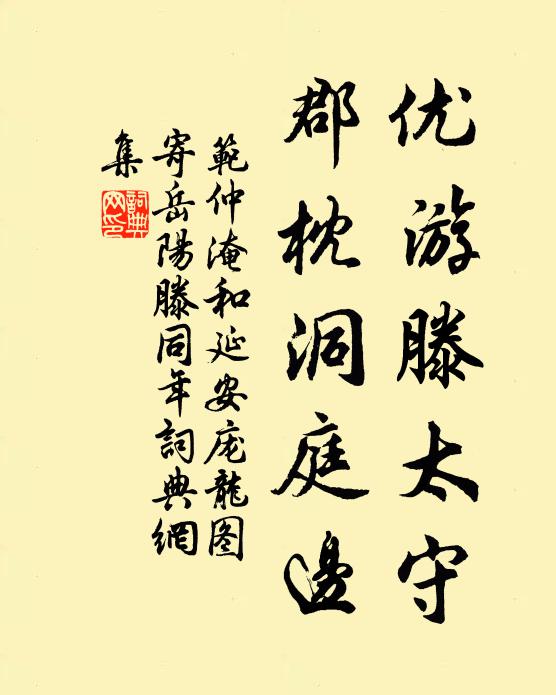 优游滕太守
郡枕洞庭邊
範仲淹和延安庞龍图
寄岳陽滕同年詞典網
集
詞典
网印